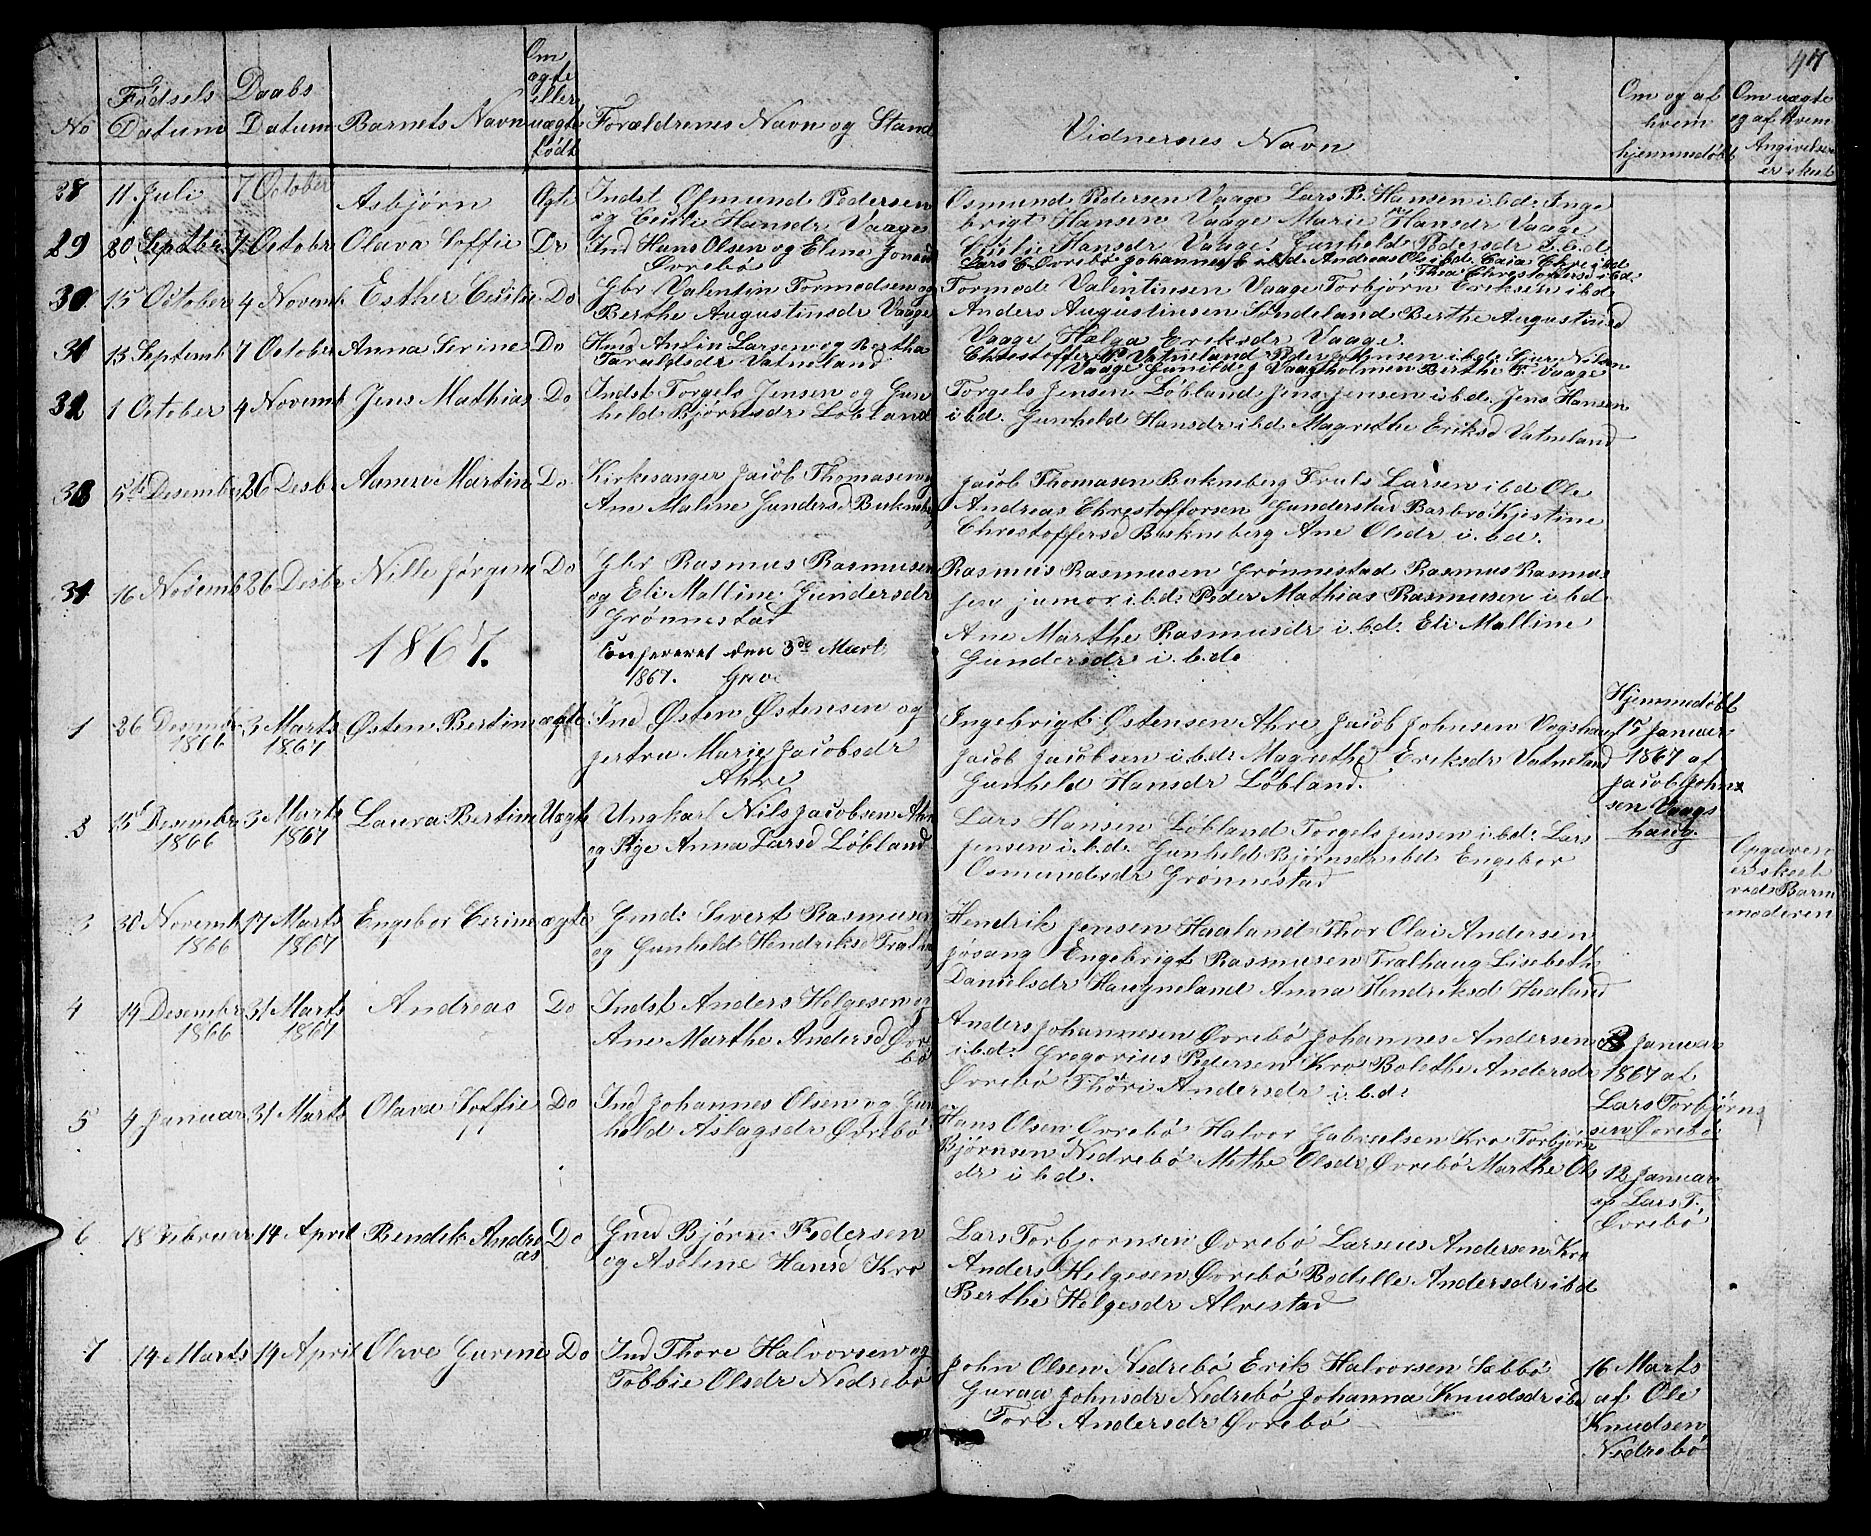 47
No
Fødsels Datum
Daabs Datum
Barnets Navn
Om ægte eller uægte født
Forældrenes Navn og Stand
Vidnernes Navn
Om og af hvem hjemmedøbt
Om uægte og af hvem Angivelsen er skeet
28 11 Juli 7 October Asbjørn Ægte Indst Osmund Pedersen
og Cecilie Hansdr Vaage
Osmund Pedersen Vaage Lars P. Hansen i.b.d: Inge
brigt Hansen Vaage Marie Hansdr Vaage
Cecilie Hansdr Vaage. Gunheld Pedersdr i.b.d
29 20 Septbr 7 Octobr Olava Soffie Do Ind Hans Olsen og Eline Jonasd
Øvrebø
Lars E Øvrebø Johannes E i.b.d. Andreas Ols i.b.d. Caia Chre i.b.d
Thea Chrestoffersd i.b.d.
30 15 October 4 Novemb Esther Cecilie Do Gbr Valentin Tormodsen og
Berthe Augustinsdr Vaage
Tormod Valentinsen Vaage Torbjørn Eriksen i.b.d
Anders Augustinsen Søndeland Berthe Augustinsd
Vaage Helga Eriksdr Vaage.
31 13 Septemb 7 October Anna Serine Do Hmd Anfin Larsen og Bertha
Taraldsdr Vatneland
Chrestoffer P. Vatneland Peder Johnsen i.b.d: Sjur Nilsen
Vaage Gunild J Vaagholmen Berthe T. Vaage
32 1 October 4 Novemb Jens Mathias Do Indst Torgels Jensen og Gun
held Bjørnsdr Løbland
Torgels Jensen Løbland Jens Jensen i.b.d. Jens Hansen
i.b.d. Gunheld Hansdr i.b.d. Magrethe Eriksd Vatneland
33 5te Desember 26 Desbr Martin Do Kirkesanger Jacob Thomasen og
Ane Maline Gundersd Bukneberg
Jacob Thomasen Bukneberg Truls Larsen i.b.d Ole
Andreas Chrestoffersen Gunderstad Barbro Kjistine
Chrestoffersd Bukneberg Ane Olsdr i.b.d.
34 16 Novemb 26 Desbr Nille Jørgine Do Gbr Rasmus Rasmusen
og Eli Malline Gundersdr
Grønnestad
Rasmus Rasmusen Grønnestad Rasmus Rasmus
sen junior i.b.d: Peder Mathias Rasmusen i.b.d
Ane Marthe Rasmusdr i.b.d: Eli Malline
Gundersdr i.b.d.
1867.
Confereret den 3de Marts
1867.
1 26 Desember 1866 3 Marts 1867 Østen Bertin ægte Ind Østen Østensen og
Jertru Marie Jacobsdr
Ahre
Ingebrigt Østensen Ahre Jacob Johnsen Vogshaug
Jacob Jacobsen i.b.d: Magrethe Eriksdr Vatneland
Gunheld Hansdr Løbland.
Hjemmedøbt
15 Januar
1867 af
Jacob John
sen Vaags
haug.
3 25 Desembr 1866 3 Marts 1867 Laura Bertine Uægte Ungkarl Nils Jacobsen Ahre
og Pige Anna Larsd Løbland
Lars Hansen Løbland Torgels Jensen i.b.d: Lars
Jensen i.b.d. Gunheld Bjørnsdr i.b.d Engebor
Osmundsdr Grønnestad
Opgaven
er skeet
ved Barn
moderen
3 30 Novemb 1866 17 Marts 1867 Engebor Cerine ægte Gmd: Sivert Rasmusen
og Gunheld Hendriksd Tralhaug
Hendrik Jensen Haaland Thor Olai Andersen
Jøsang Engebrigt Rasmusen Tralhaug Lisebeth
Danielsdr Haugneland Anna Hendriksd Haaland
4 14 Desembr 1866 31 Marts 1867 Andreas Do Indst Anders Helgesen og
Ane Marthe Andersd Øvre
bø
Anders Johannesen Øvrebø Johannes Andersen
i.b.d: Gregorius Pedersen Kro Bolethe Andersdr
Øvrebø Thori Andersdr i.b.d:
3 Januar
1867 af
Lars Torbjørn
sen Øvrebø
5 4 Januar 31 Marts Olava Soffie Do Ind Johannes Olsen og Gun
held Aslagsdr Øvrebø
Hans Olsen Øvrebø Halvor Gabrielsen Kro Torbjørn
Bjørnsen Nedrebø Methe Olsdr Øvrebø Marthe Ols
dr i.b.d.
12 Januar
af Lars T.
Øvrebø
6 18 Februar 14 April Bendik Andre
as Do Gmd Bjørn Pedersen
og Aseline Hansd Kro
Lars Torbjornsen Øvrebø Larsius Andersen Kro
Anders Helgesen Øvrebø Bodelle Andersdr i.b.d
Berthe Helgesdr Alvestad
7 14 Marts 14 April Olave Gurine Do Ind Thore Halvorsen og
Tobbie Olsdr Nedrebø
John Olsen Nedrebø Erik Halvorsen Sæbbø
Guraa Johnsdr Nedrebø Johanna Knudsdr i.b.d
Tore Andersdr Øvrebø
16 Marts
af Ole
Knudsen
Nedrebø